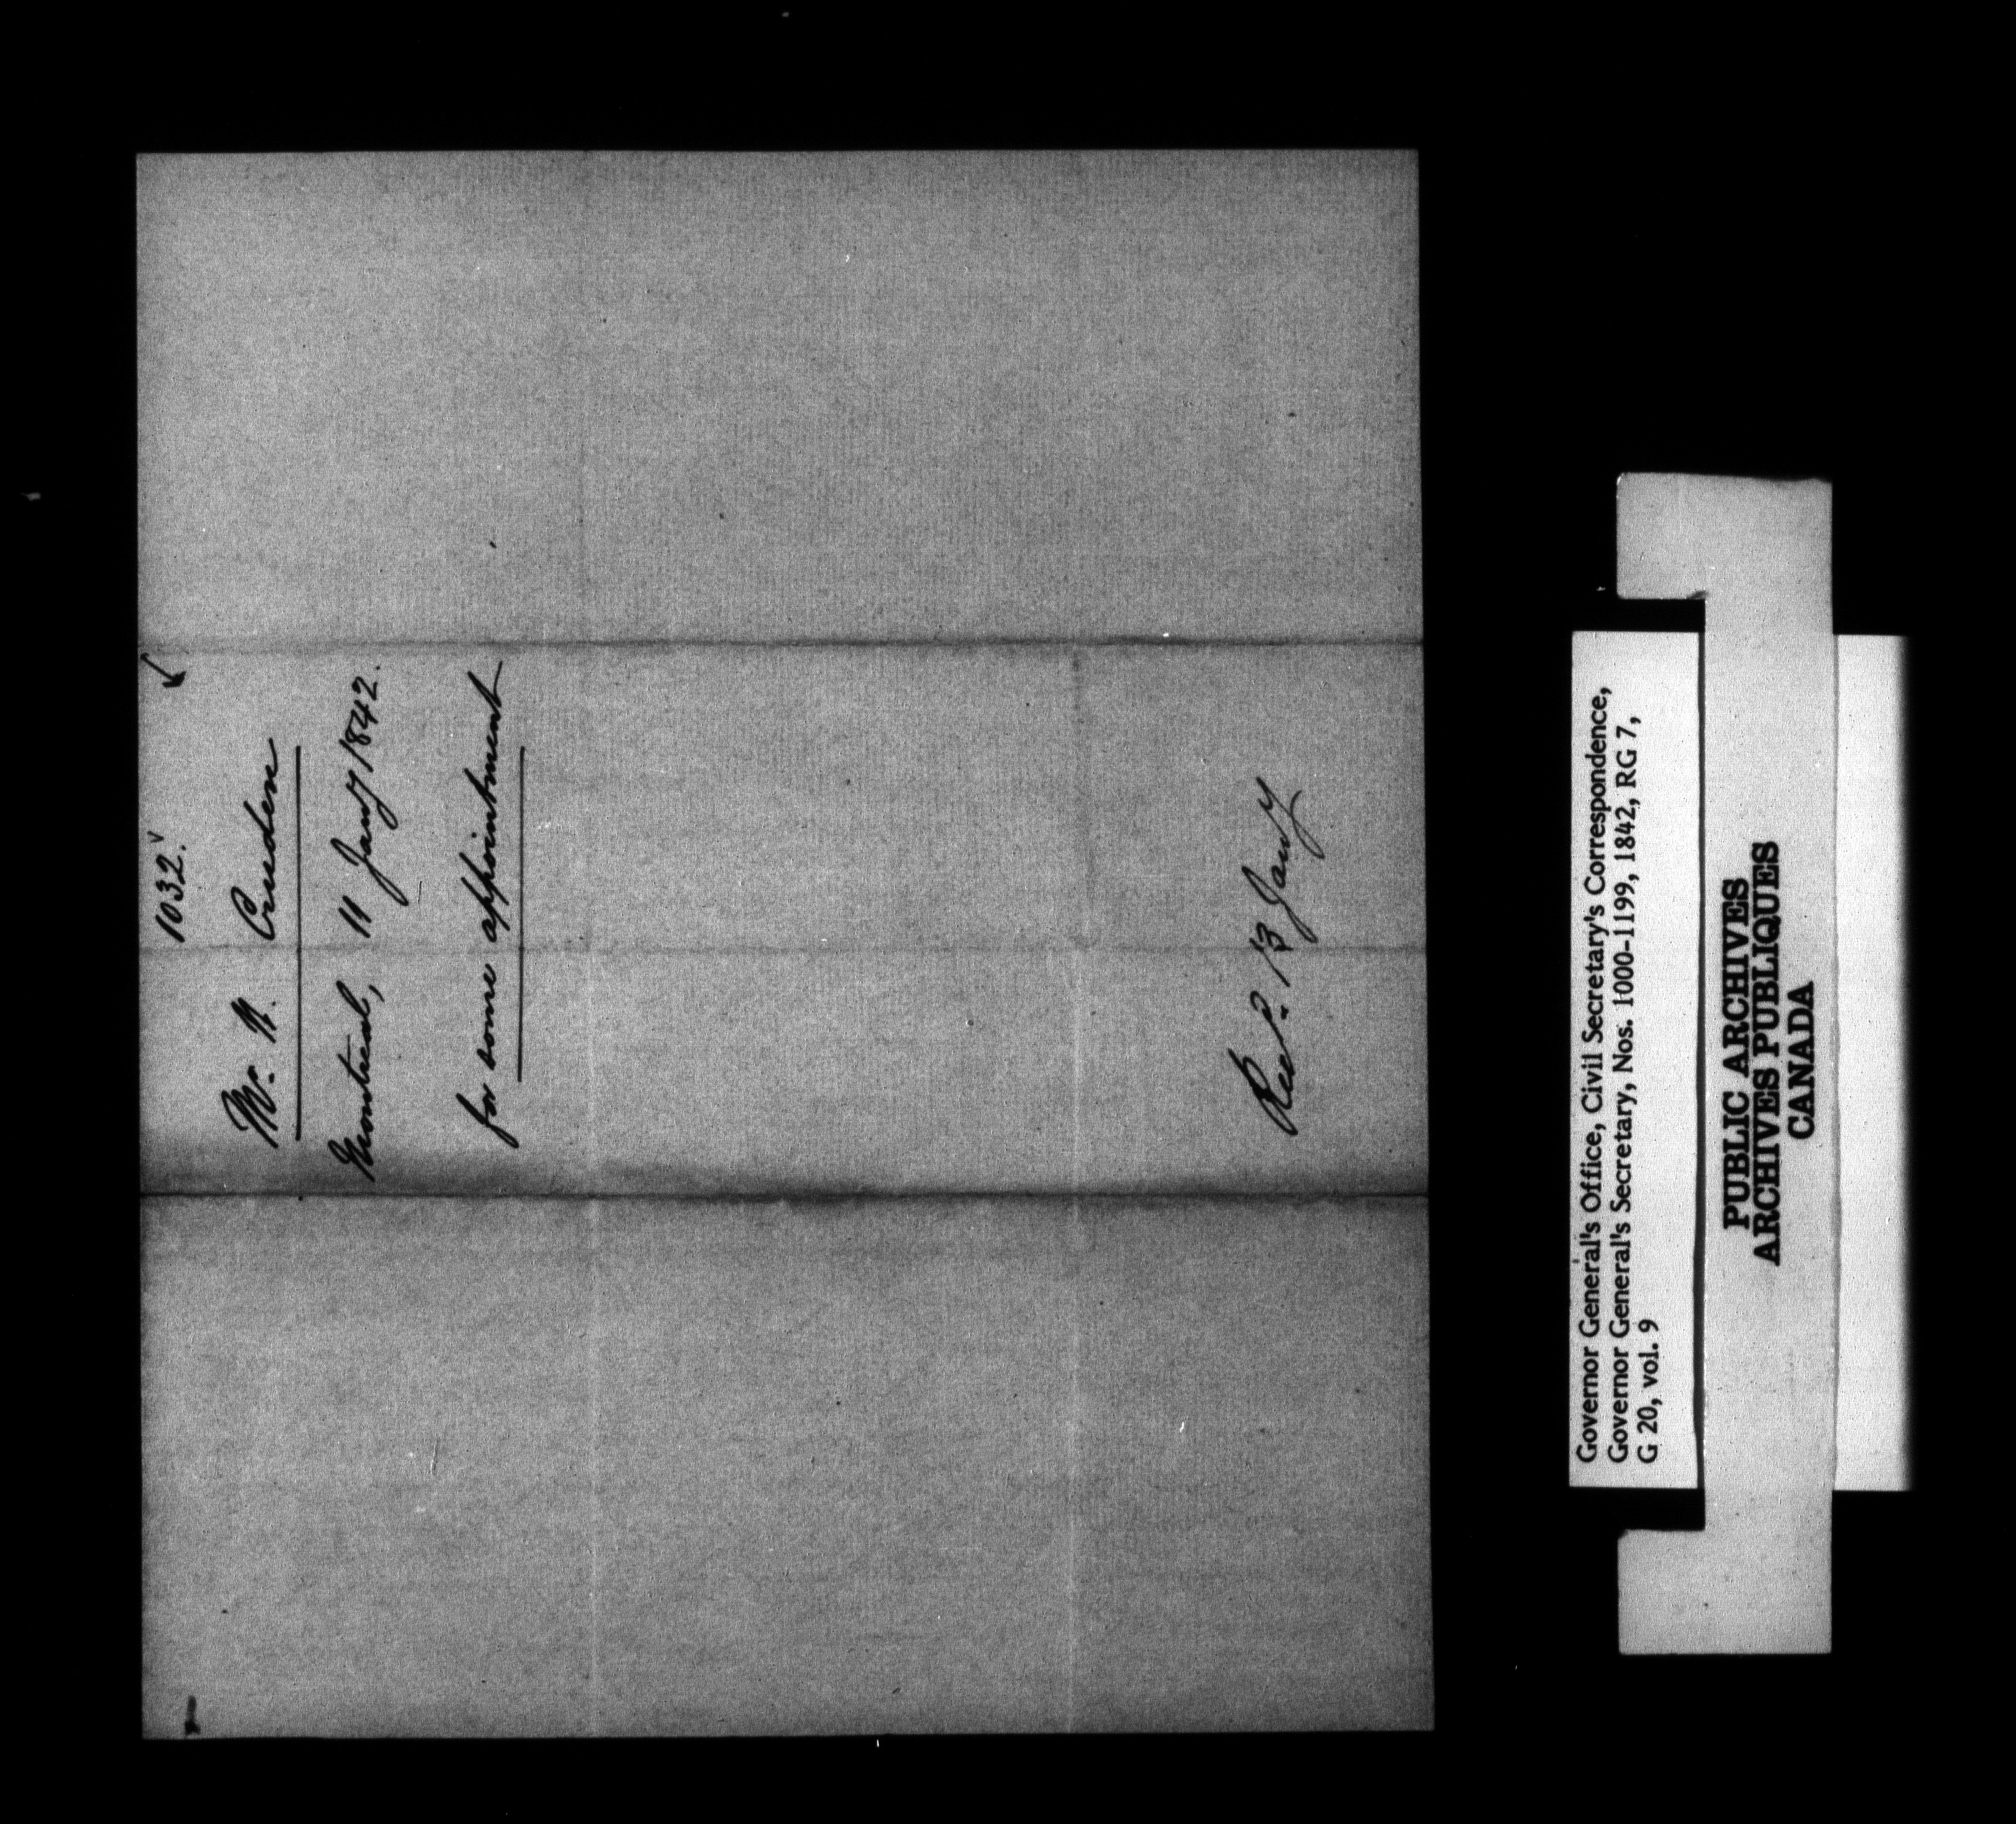 1032.
Mr. W. Cruden
Montreal, 11 Jany 1842.
for some appointment
Recd. 13 Jany
Governor General's Office, Civil Secretary's Correspondence,
Governor General's Secretary, Nos. 1000-1199, 1842, RG 7,
G 20, vol. 9
PUBLIC ARCHIVES
ARCHIVES PUBLIQUES
CANADA